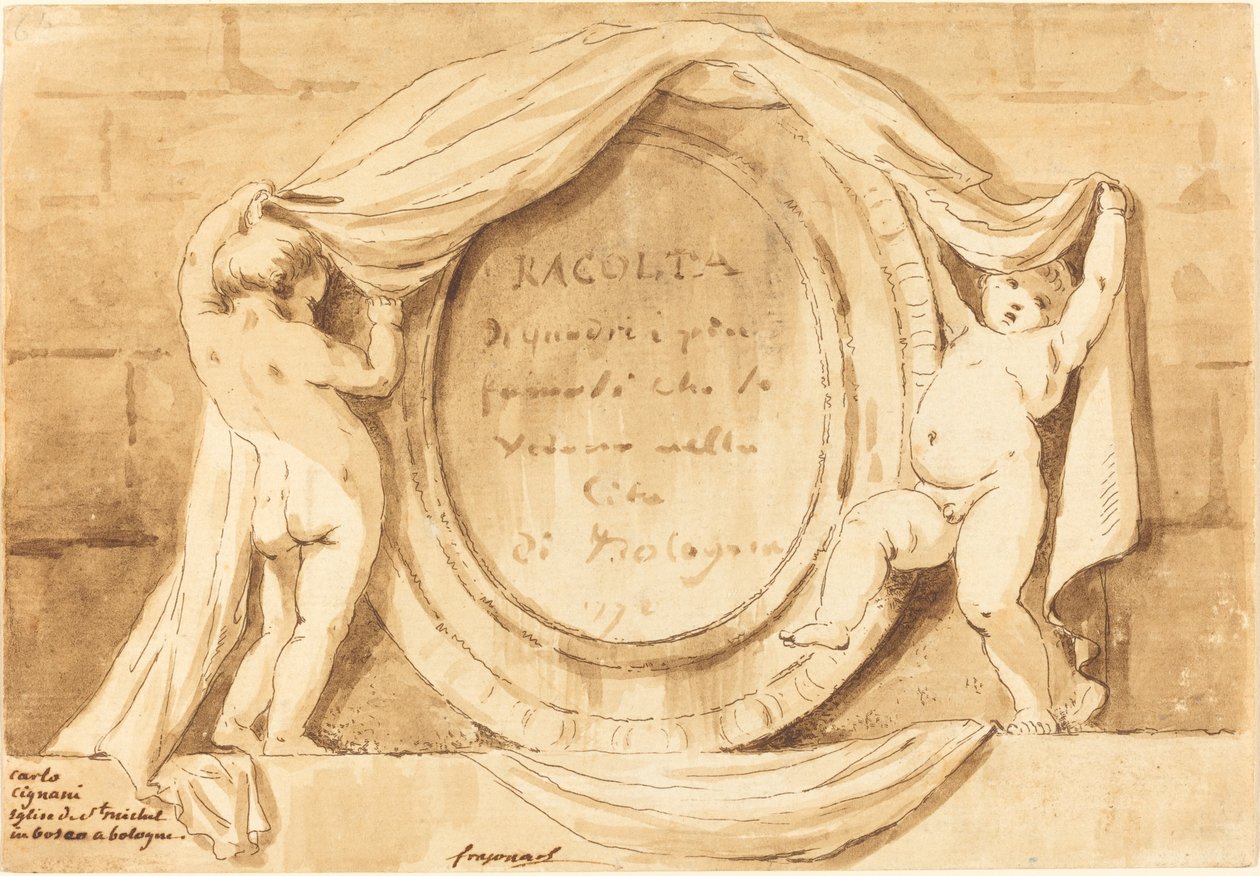 RACOLTA
di quadri i piu
famosi che se
vedono nella
Cita
di Bologna
177
carlo
cignani
Eglise de St michel
in bosco a bologne.
fragonard